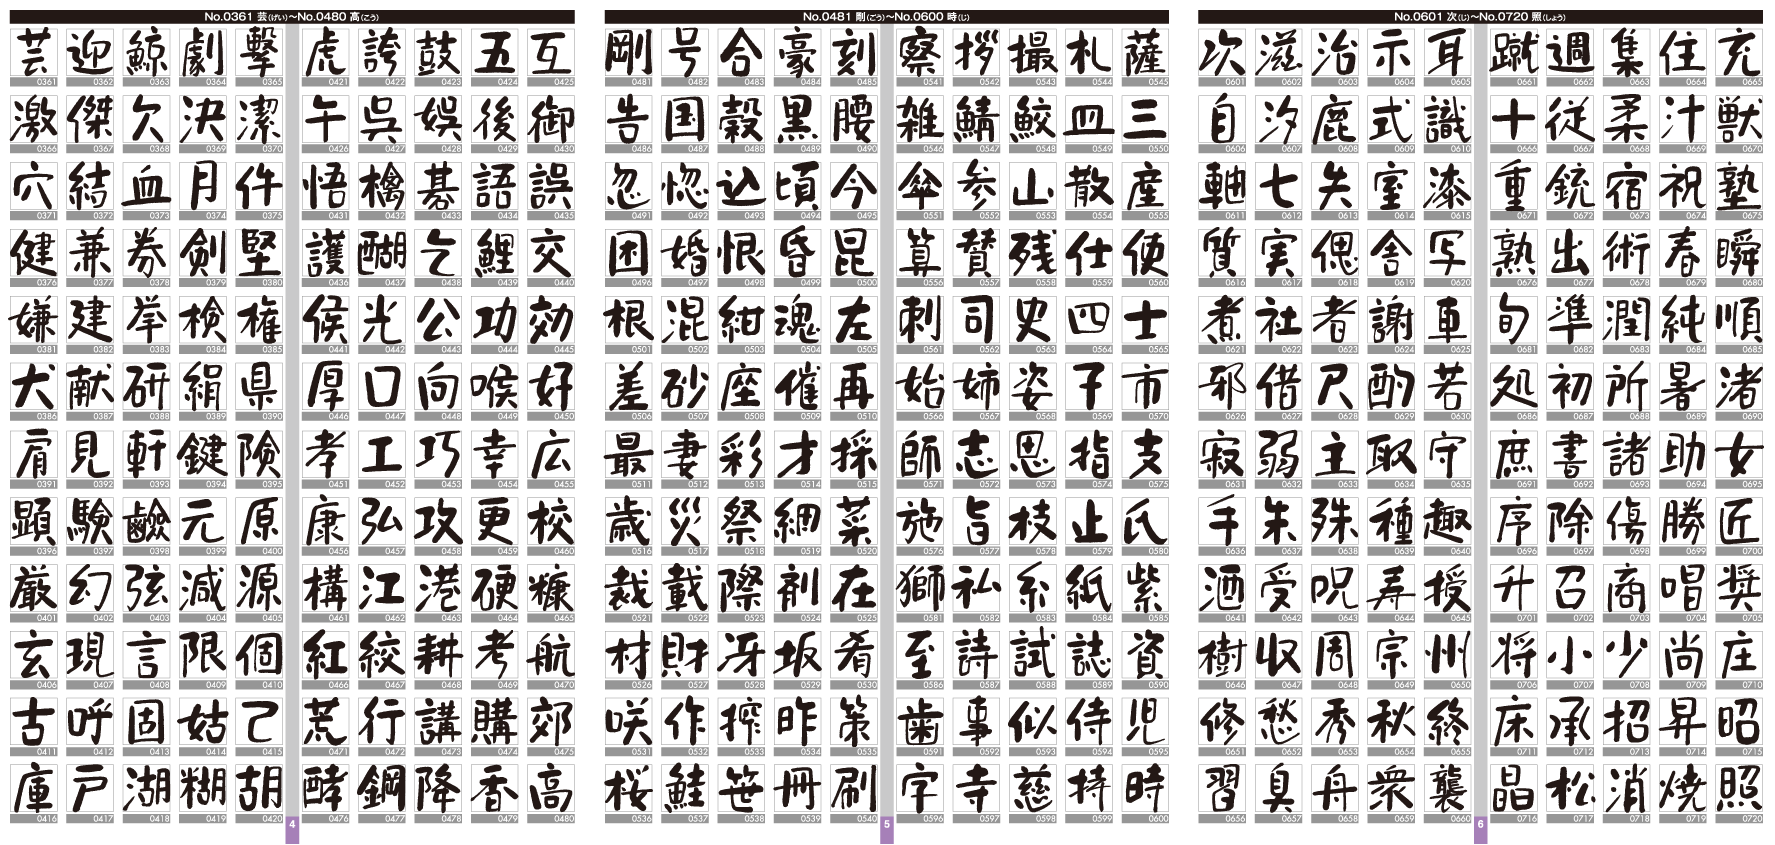 No.0361 芸(げい)～No.0480 高(こう)
芸 迎 鯨 劇 撃 虎 誇 鼓 五 互
0361 0362 0363 0364 0365 0421 0422 0423 0424 0425
激 傑 欠 決 潔 午 呉 娯 後 御
0366 0367 0368 0369 0370 0426 0427 0428 0429 0430
穴 結 血 月 件 悟 檎 碁 語 誤
0371 0372 0373 0374 0375 0431 0432 0433 0434 0435
健 兼 券 剣 堅 護 醐 乞 鯉 交
0376 0377 0378 0379 0380 0436 0437 0438 0439 0440
嫌 建 挙 検 権 候 光 公 功 効
0381 0382 0383 0384 0385 0441 0442 0443 0444 0445
犬 献 研 絹 県 厚 口 向 喉 好
0386 0387 0388 0389 0390 0446 0447 0448 0449 0450
肩 見 軒 鍵 険 孝 工 巧 幸 広
0391 0392 0393 0394 0395 0451 0452 0453 0454 0455
顕 験 鹸 元 原 康 弘 攻 更 校
0396 0397 0398 0399 0400 0456 0457 0458 0459 0460
厳 幻 弦 減 源 構 江 港 硬 糠
0401 0402 0403 0404 0405 0461 0462 0463 0464 0465
玄 現 言 限 個 紅 絞 耕 考 航
0406 0407 0408 0409 0410 0466 0467 0468 0469 0470
古 呼 固 姑 己 荒 行 講 購 郊
0411 0412 0413 0414 0415 0471 0472 0473 0474 0475
庫 戸 湖 糊 胡 酵 鋼 降 香 高
0416 0417 0418 0419 0420 0476 0477 0478 0479 0480
4
No.0481 剛(ごう)～No.0600 時(じ)
剛 号 合 豪 刻 察 拶 撮 札 薩
0481 0482 0483 0484 0485 0541 0542 0543 0544 0545
告 国 穀 黒 腰 雑 鯖 鮫 皿 三
0486 0487 0488 0489 0490 0546 0547 0548 0549 0550
忽 惚 込 頃 今 傘 参 山 散 産
0491 0492 0493 0494 0495 0551 0552 0553 0554 0555
困 婚 恨 昏 昆 算 賛 残 仕 使
0496 0497 0498 0499 0500 0556 0557 0558 0559 0560
根 混 紺 魂 左 刺 司 史 四 士
0501 0502 0503 0504 0505 0561 0562 0563 0564 0565
差 砂 座 催 再 始 姉 姿 子 市
0506 0507 0508 0509 0510 0566 0567 0568 0569 0570
最 妻 彩 才 採 師 志 思 指 支
0511 0512 0513 0514 0515 0571 0572 0573 0574 0575
歳 災 祭 網 菜 施 旨 枝 止 氏
0516 0517 0518 0519 0520 0576 0577 0578 0579 0580
裁 載 際 剤 在 獅 私 糸 紙 紫
0521 0522 0523 0524 0525 0581 0582 0583 0584 0585
材 財 冴 坂 肴 至 詩 試 誌 資
0526 0527 0528 0529 0530 0586 0587 0588 0589 0590
咲 作 搾 昨 策 歯 事 似 侍 児
0531 0532 0533 0534 0535 0591 0592 0593 0594 0595
桜 鮭 笹 冊 刷 字 寺 慈 持 時
0536 0537 0538 0539 0540 0596 0597 0598 0599 0600
5
No.0601 次(じ)～No.0720 照(しょう)
次 滋 治 示 耳 蹴 週 集 住 充
0601 0602 0603 0604 0605 0661 0662 0663 0664 0665
自 汐 鹿 式 識 十 従 柔 汁 獣
0606 0607 0608 0609 0610 0666 0667 0668 0669 0670
軸 七 失 室 漆 重 銃 宿 祝 塾
0611 0612 0613 0614 0615 0671 0672 0673 0674 0675
質 実 偲 舎 写 熟 出 術 春 瞬
0616 0617 0618 0619 0620 0676 0677 0678 0679 0680
煮 社 者 謝 車 旬 準 潤 純 順
0621 0622 0623 0624 0625 0681 0682 0683 0684 0685
邪 借 尺 酌 若 処 初 所 暑 渚
0626 0627 0628 0629 0630 0686 0687 0688 0689 0690
寂 弱 主 取 守 庶 書 諸 助 女
0631 0632 0633 0634 0635 0691 0692 0693 0694 0695
手 朱 殊 種 趣 序 除 傷 勝 匠
0636 0637 0638 0639 0640 0696 0697 0698 0699 0700
酒 受 呪 寿 授 升 召 商 唱 奨
0641 0642 0643 0644 0645 0701 0702 0703 0704 0705
樹 収 周 宗 州 将 小 少 尚 庄
0646 0647 0648 0649 0650 0706 0707 0708 0709 0710
修 愁 秀 秋 終 床 承 招 昇 昭
0651 0652 0653 0654 0655 0711 0712 0713 0714 0715
習 臭 舟 衆 襲 晶 松 消 焼 照
0656 0657 0658 0659 0660 0716 0717 0718 0719 0720
6